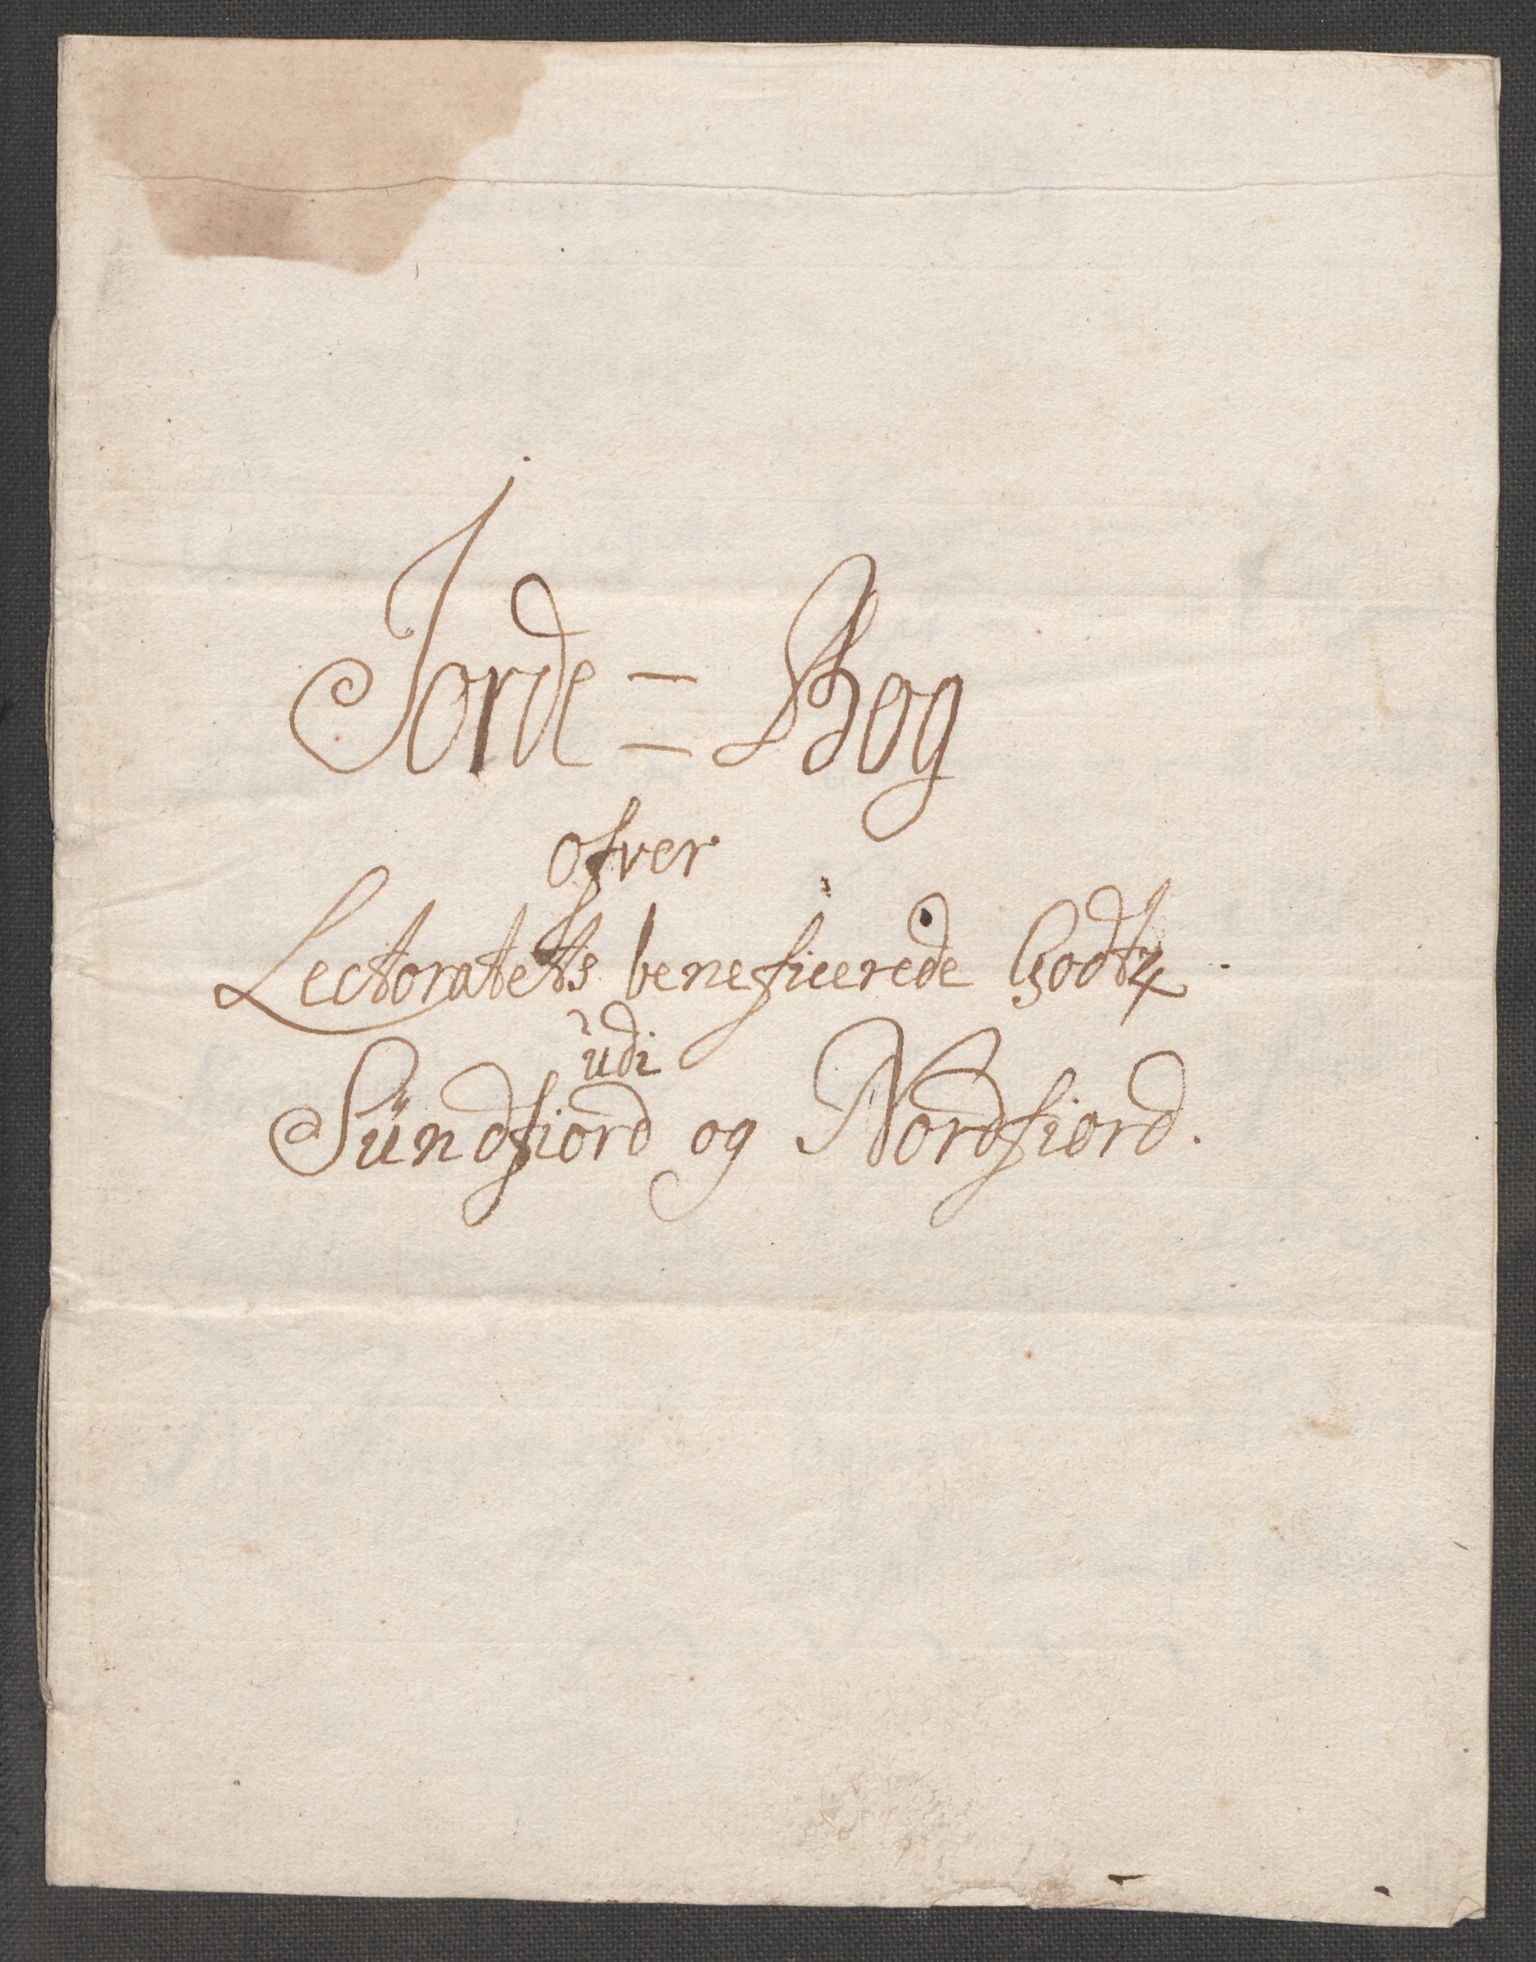 Jorde = Bog
ofver
Lectoratetts beneficerede Godtz
udi
Sündfiord og Nordfiord.